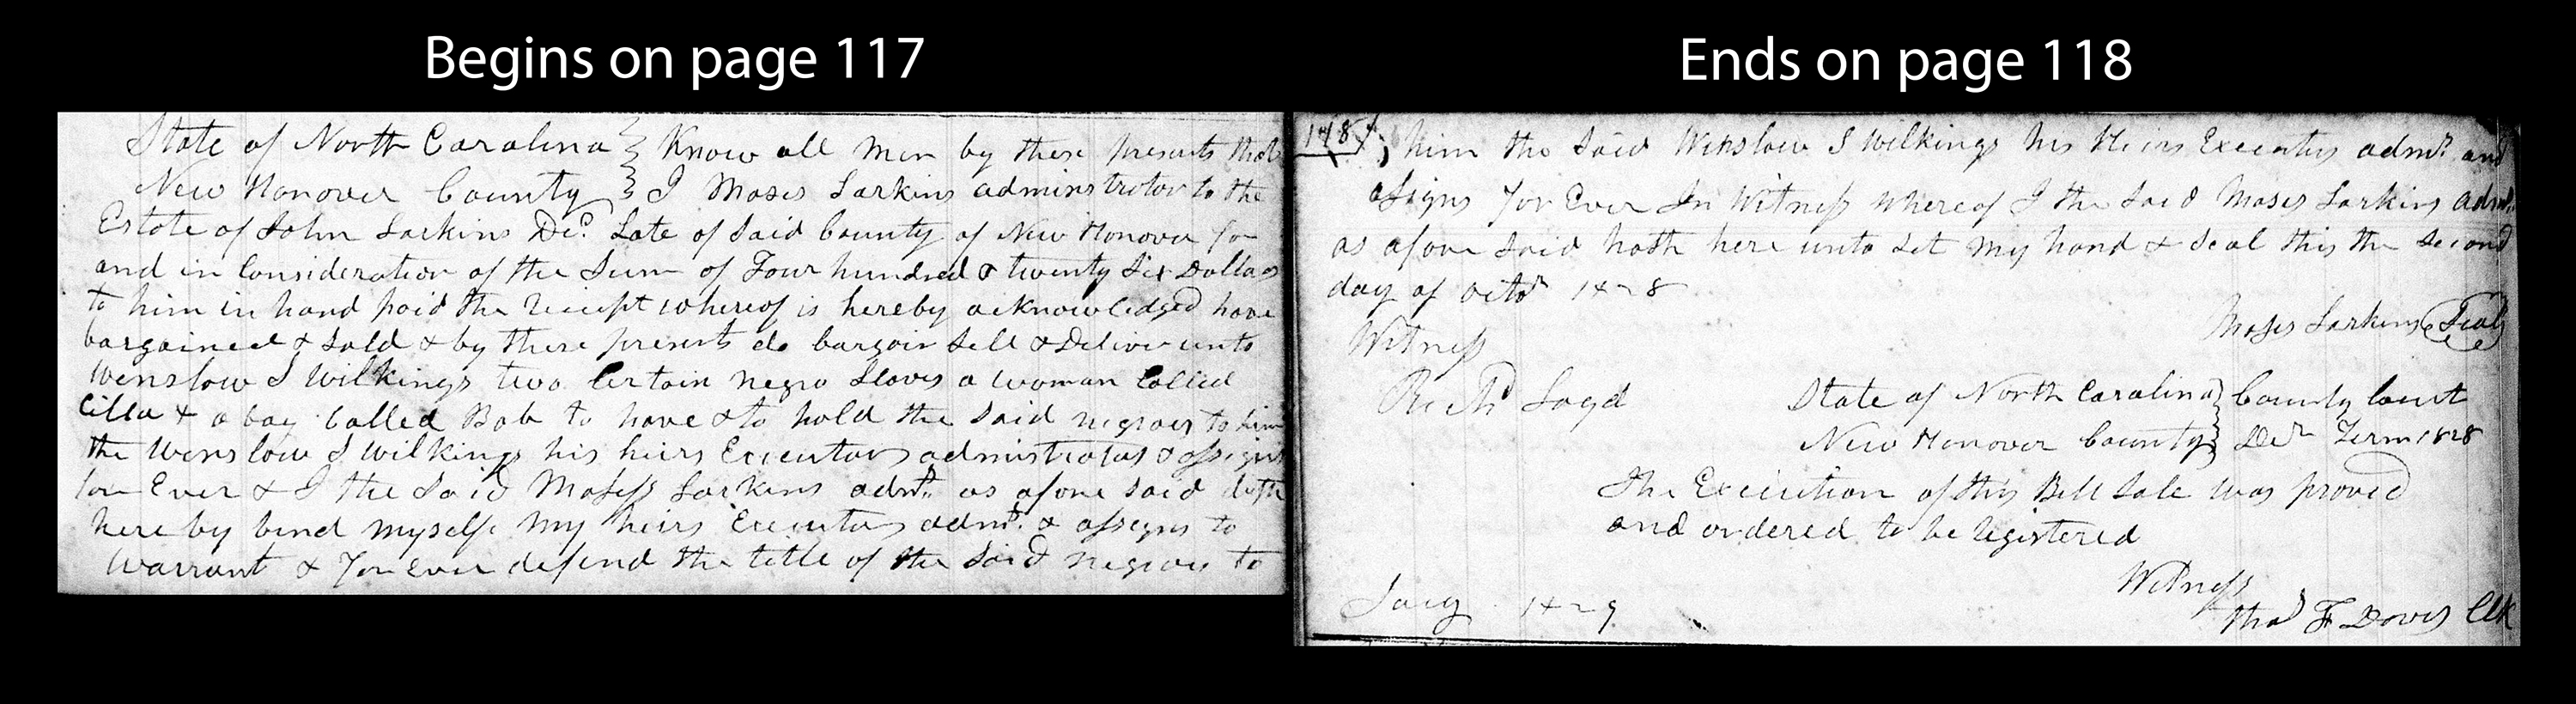 Begins on page 117
State of North Carolina } Know all men by these presents that
New Hanover County } I Moses Larkins administrator to the
Estate of John Larkins Decd. Late of Said County of New Hanover for
and in Consideration of the Sum of Four hundred & twenty Six Dollars
to him in hand paid the receipt whereof is hereby acknowledged have
bargained & Sold & by these presents do bargain Sell & Deliver unto
Winslow S Wilkings two Certain negro Slaves a woman Called
Cilla & a boy Called Bob to have & to hold the Said negroes to him
the Winslow S Wilkings his heirs Executors administrators & assigns
for Ever & I the Said Moses Larkins admr. as afore said doth
here by bind myself my heirs Executors admr. & assigns to
warrant & Forever defend the title of the Said negroes to
Ends on page 118
118
him the Said Winslow S Wilkings his Heirs Executors admr. and
assigns For Ever In Witness Whereof I the Said Moses Larkins admr.
as afore Said hath here unto Set my hand & Seal this the Second
day of Octor 1828
Moses Larkins Seal
Witness
Richd Loyd
State of North Carolina } County Court
New Hanover County } Der Term 1828
The Execution of this Bill Sale was proved
and ordered to be registered
Witness
Thos F Davis Clk
1829